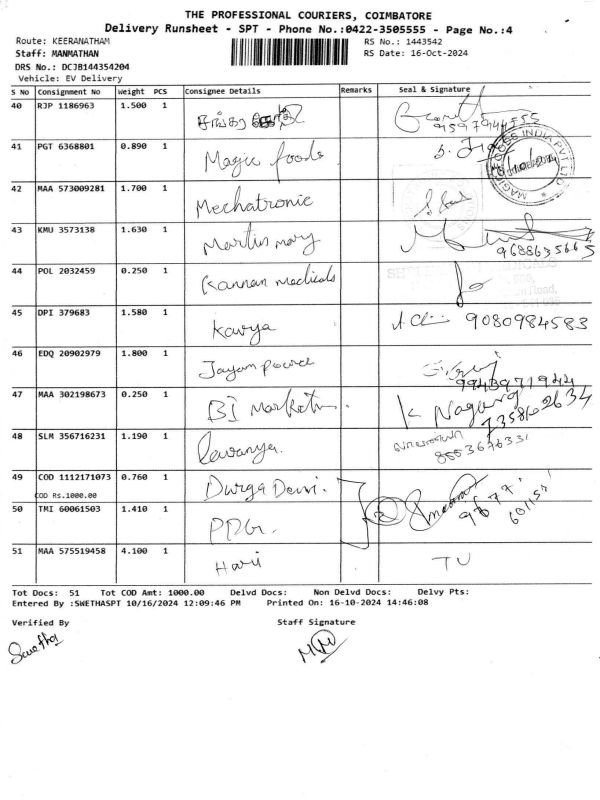 THE PROFESSIONAL COURIERS, COIMBATORE
Delivery Runsheet - SPT - Phone No.:0422-3505555 - Page No.:4
Route: KEERANATHAM
RS No.: 1443542
Staff: MANMATHAN
RS Date: 16-Oct-2024
DRS No.: DCJB144354204
Vehicle: EV Delivery
S No Consignment No Weight PCS Consignee Details Remarks Seal & Signature
40 RJP 1186963 1.500 1
41 PGT 6368801 0.890 1 Magic foods
42 MAA 573009281 1.700 1 Mechatronic
43 KMU 3573138 1.630 1 Martin mary 9688635665
44 POL 2032459 0.250 1 Kannan medicals
45 DPI 379683 1.580 1 Kavya 9080984583
46 EDQ 20902979 1.800 1 9943971944
47 MAA 302198673 0.250 1 7358602634
48 SLM 356716231 1.190 1 Lavanya.
49 COD 1112171073 0.760 1 Durga Devi.
COD Rs.1000.00
50 TMI 60061503 1.410 1
51 MAA 575519458 4.100 1 Hari
Tot Docs: 51 Tot COD Amt: 1000.00 Delvd Docs: Non Delvd Docs: Delvy Pts:
Entered By :SWETHASPT 10/16/2024 12:09:46 PM Printed On: 16-10-2024 14:46:08
Verified By Staff Signature
Swetha